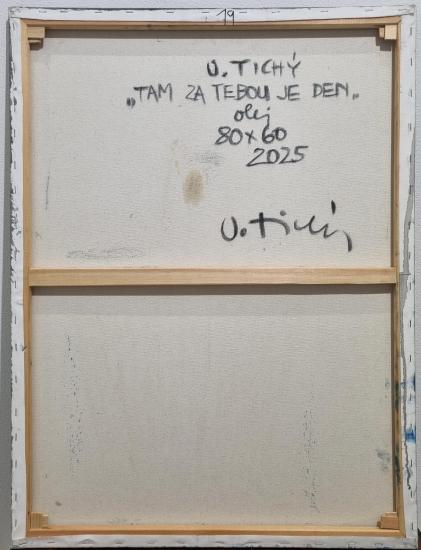 19
V. TICHÝ
„TAM ZA TEBOU JE DEN„
olej
80x60
2025
V. Tichý